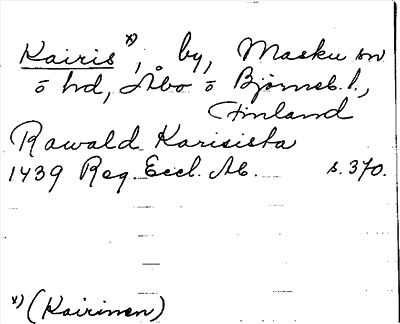 Kairis x), by, Masku sn
o hd, Åbo o Björneb. l.,
Finland
Rawald Karisista
1439 Reg. Eccl. Ab. s. 370.
x) (Kairinen)